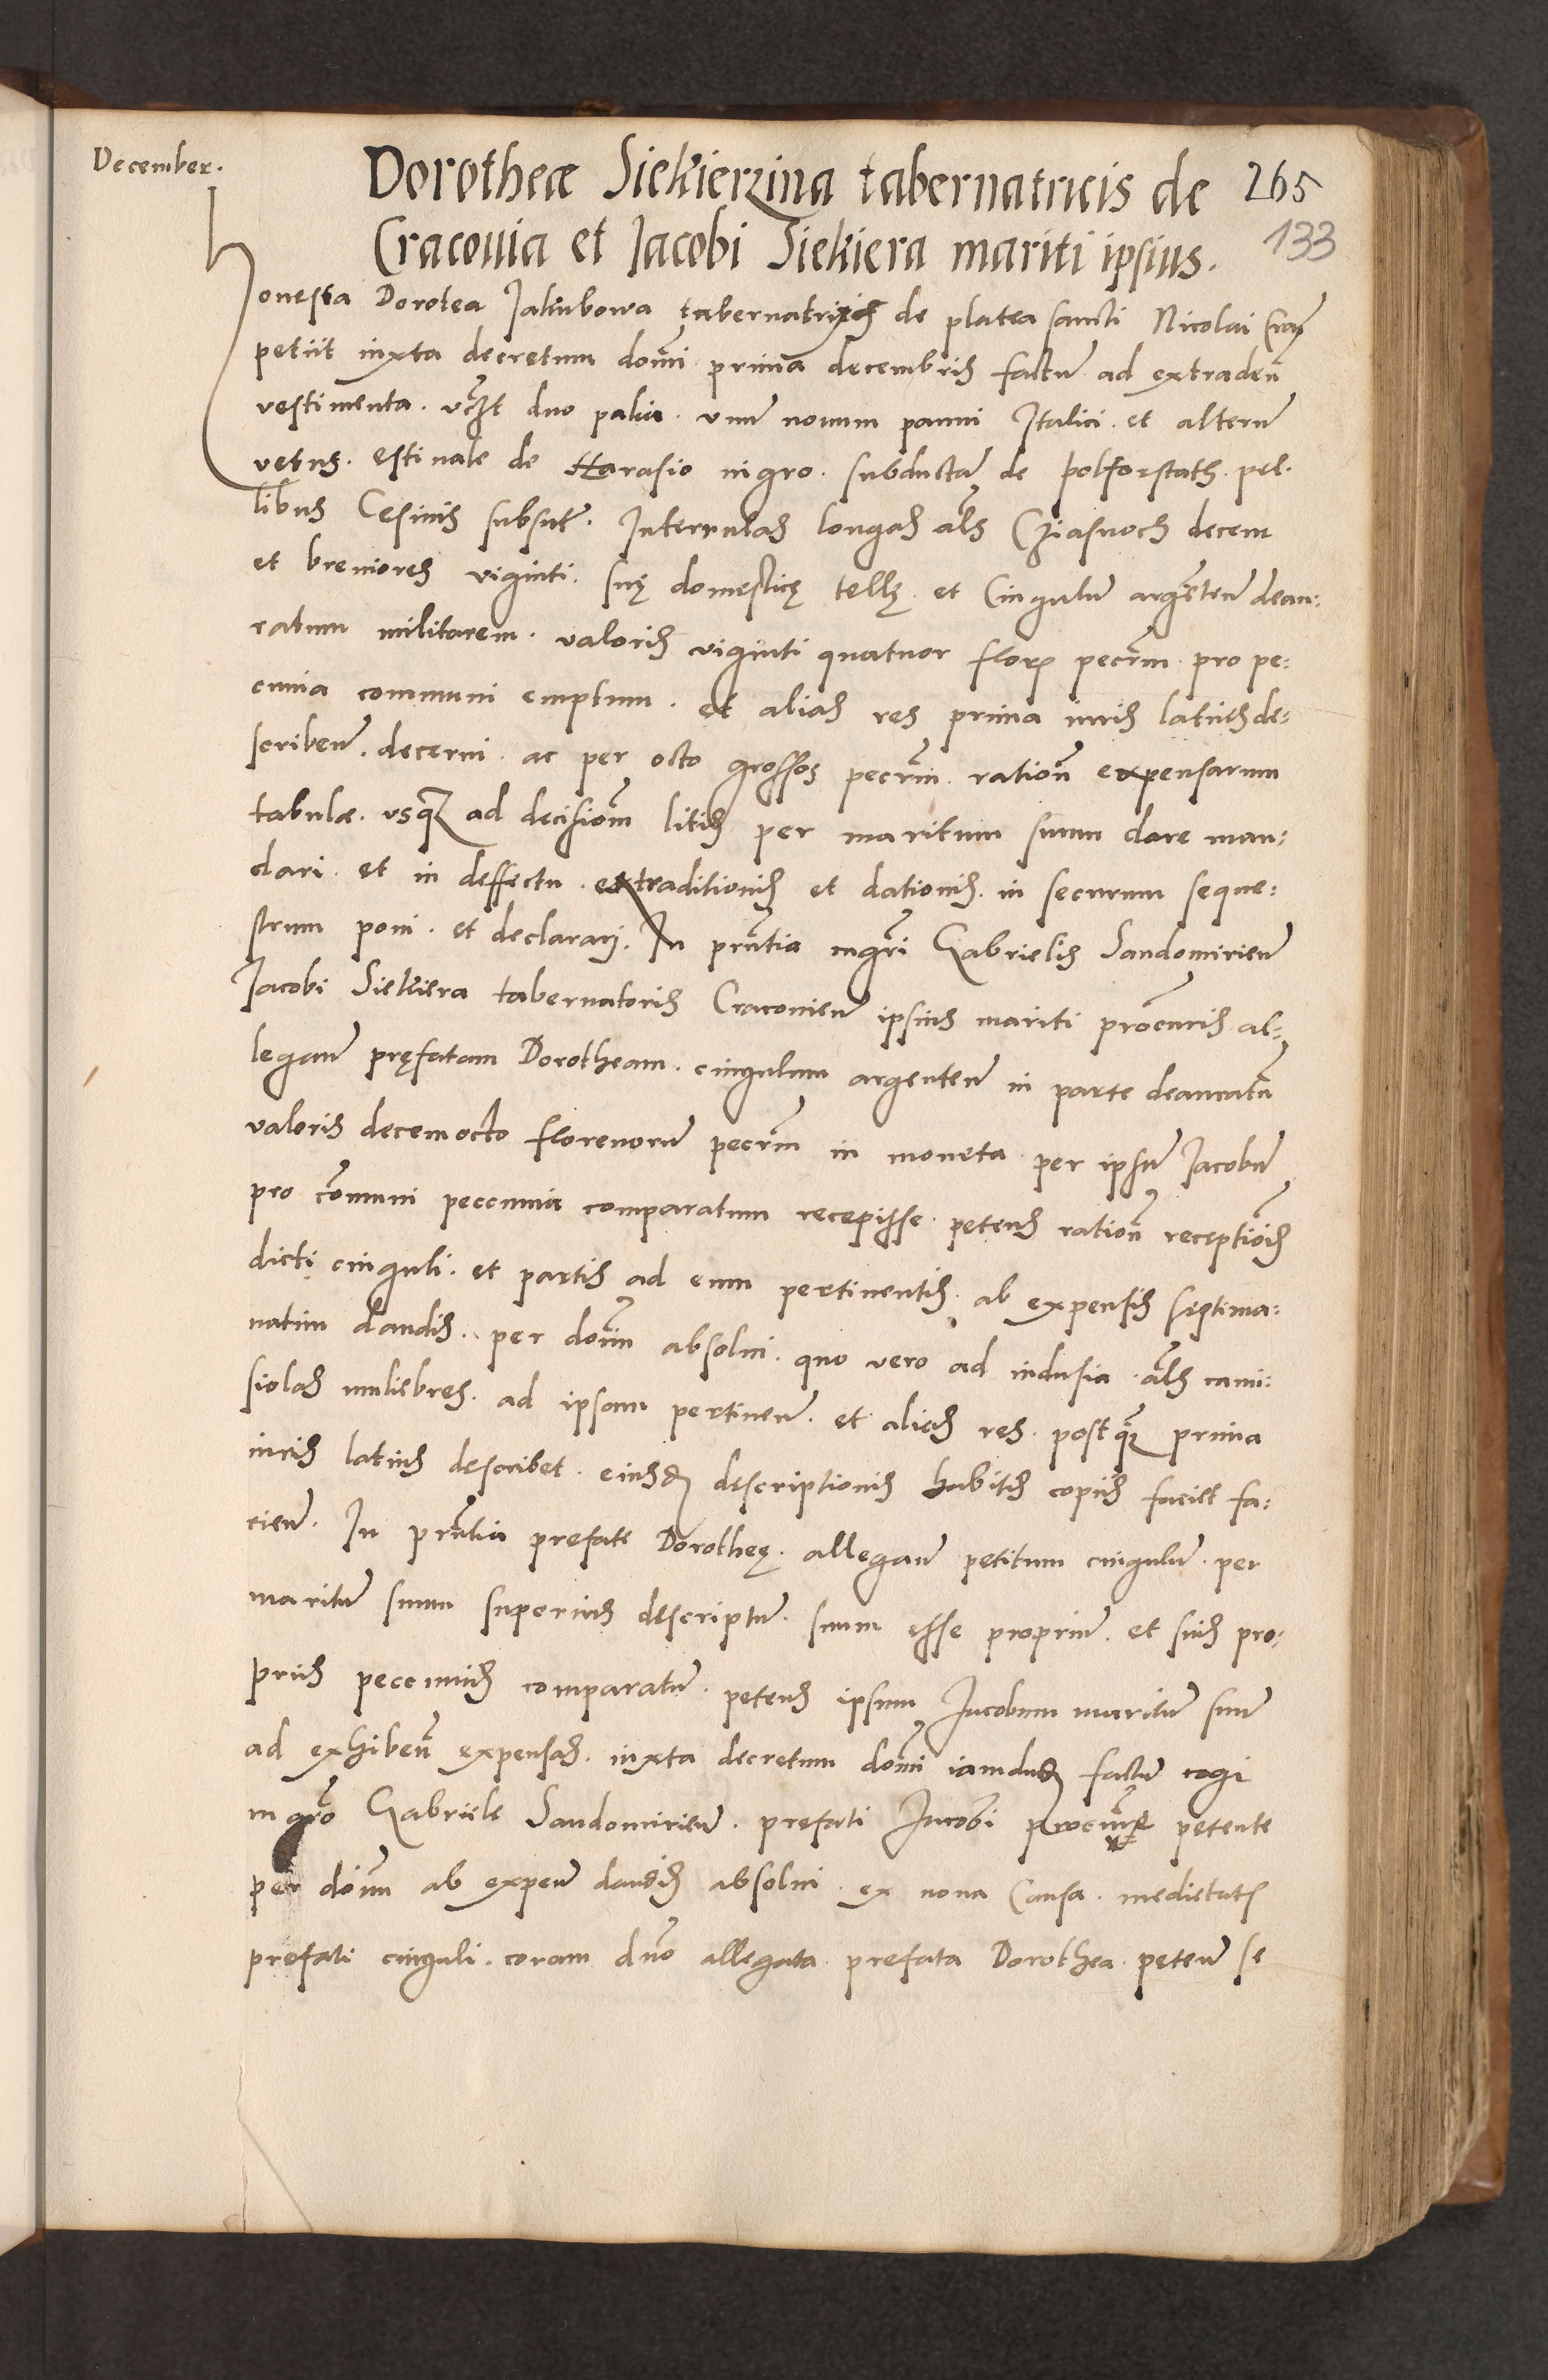 December.
Dorotheæ Siekierzina tabernatricis de 265
Cracouia et Jacobi Siekiera mariti ipsius. 133
Honesta Dorotea Jakubowa tabernatrix de platea sancti Nicolai Crac
petiit iuxta decretum domi prima decembris factu ad extraden
vestimenta. vczt duo palia. vnu nouum panni Italici. et alteru
vetus. estiuale de Harasio nigro. subducta de polforstath. pel.
libus Cesinis subsut. Interrulas longas als Cziasnoch decem
et breuiores viginti. suę domesticę tellę. et Cingulu argenteu deau:
ratum militarem. valoris viginti quatuor flor pecrm. pro pe:
cunia communi emptum. et alias res prima iuris latius de:
scriben. decerni. ac per octo grossos pecrm. ration expensarum
tabulæ. vsq ad decisiom litis per maritum suum dare man:
dari. et in deffectu. extraditionis et dationis. in securum seque:
strum poni. et declarari. In prntia mgri Gabrielis Sandomirien
Jacobi Siekiera tabernatoris Cracouien ipsius mariti procuris al:
legan pręfatam Dorotheam. cingulum argenteu in parte deauratu
valoris decemocto florenoru pecrm in moneta per ipsu Jacobu
pro comuni peccunia comparatum recepisse. petens ration receptiois
dicti cinguli. et partis ad eum pertinentis. ab expensis septima:
natim dandis. per domn absolui. quo vero ad indusia als cami:
siolas muliebres. ad ipsam pertinen. et alias res. postq prima
iuris latius describet. eiusd descriptionis habitis copiis faciet fa:
cien. In prntia prefate Dorotheę. allegan petitum cingulu. per
maritu suum superius descriptu. suum esse propriu. et suis pro:
priis peccuniis comparatu. petens ipsum Jacobum maritu suu
ad exhiben expensas. iuxta decretum domi iamdud factu cogi
mgro Gabriele Sandomirien. prefati Jacobi procur petente
per domn ab expen dandis absolui. ex noua Causa. medietatis
prefati cinguli. coram dno allegata. prefata Dorothea. peten se